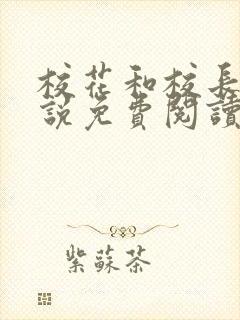 校花和校長
說免費閱讀
紫蘇茶